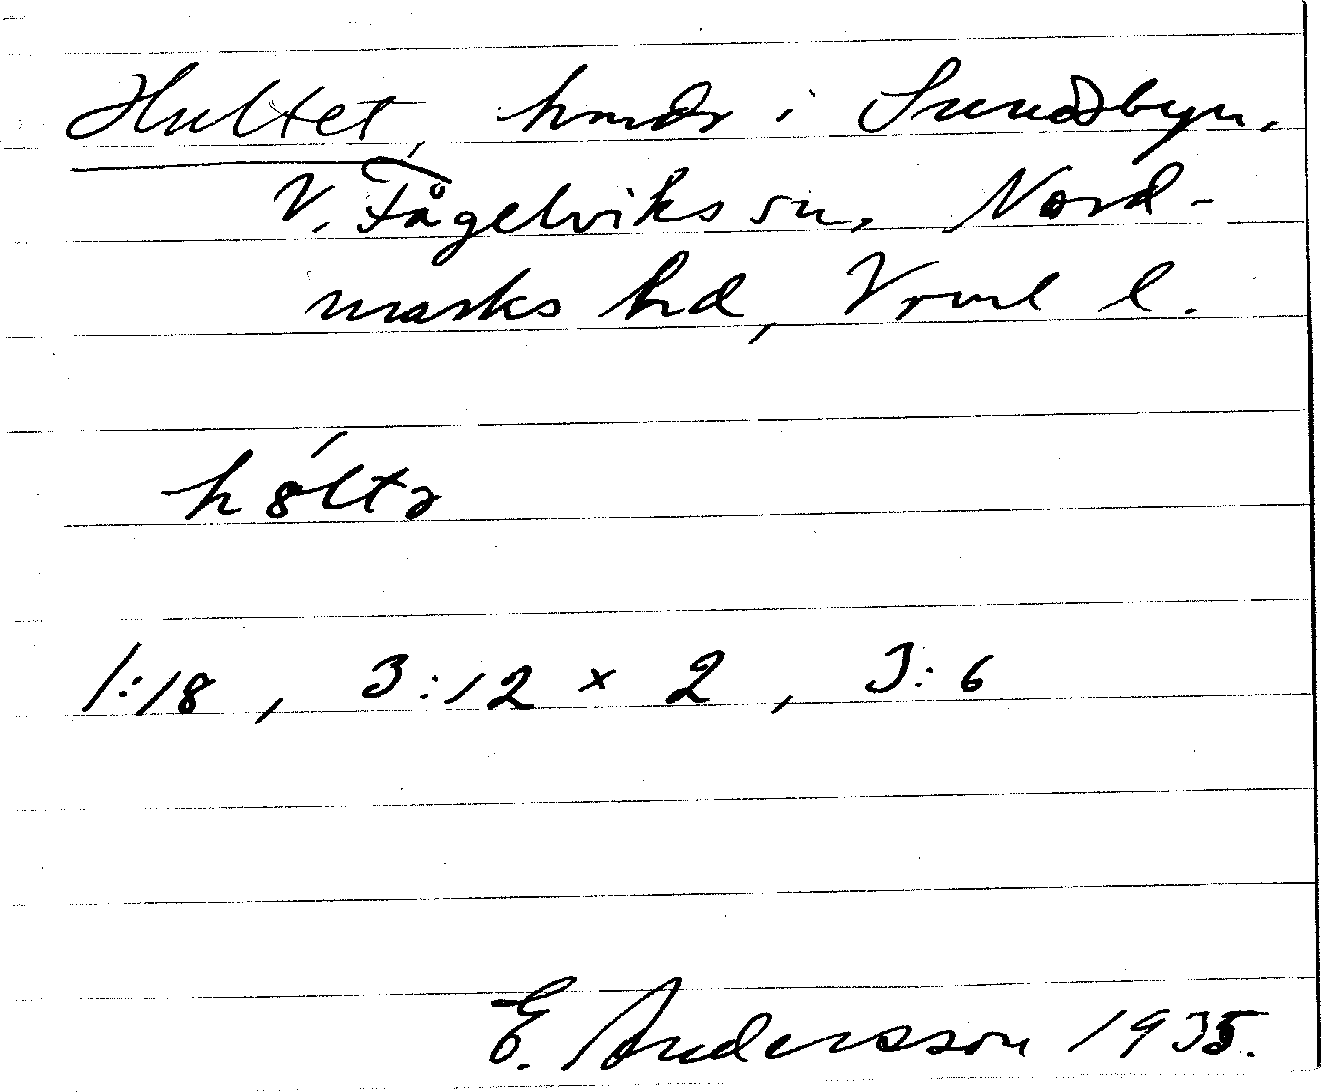 Hultet, hmdr i Sundsbyn,
V. Fågelviks sn, Nord-
marks hd, Vrml l.
hǿltə
1:18, 3:12 x 2, 3:6
E. Andersson 1935.